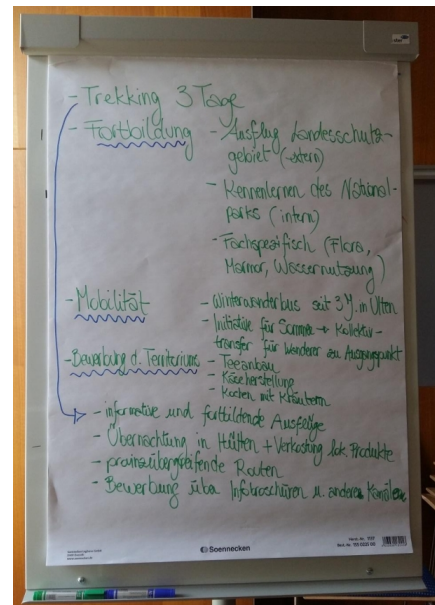 - Trekking 3 Tage
- Fortbildung - Ausflug Landesschutz-
gebiet (extern)
- Kennenlernen des National-
parks (intern)
- Fachspezifisch (Flora,
Marmor, Wassernutzung)
- Mobilität - Winterwanderbus seit 3 J. in Ulten
- Initiative für Sommer → Kollektiv-
transfer für Wanderer zu Ausgangspunkt
- Bewerbung d. Territoriums - Teeanbau
- Käseherstellung
- Kochen mit Kräutern
- informative und fortbildende Ausflüge
- Übernachtung in Hütten + Verkostung lok. Produkte
- provinzübergreifende Routen
- Bewerbung über Infobroschüren u. andere Kanäle
Soennecken